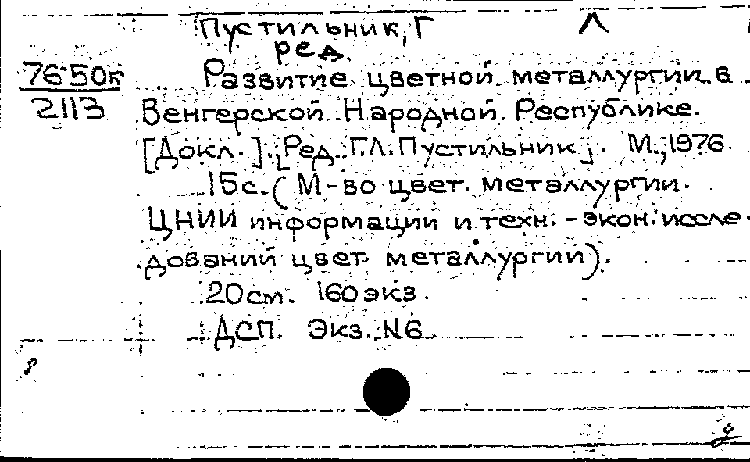 Пустильник, Г Л
ред.
76-50к
2113
Развитие цветной металлургии в
Венгерской Народной Республике.
[Докл.]. [Ред. Г.Л. Пустильник]. М., 1976
15с. (М-во цвет. металлургии.
ЦНИИ информации и техн.-экон. иссле-
дований цвет. металлургии).
20см. 160 экз.
ДСП. Экз. №6